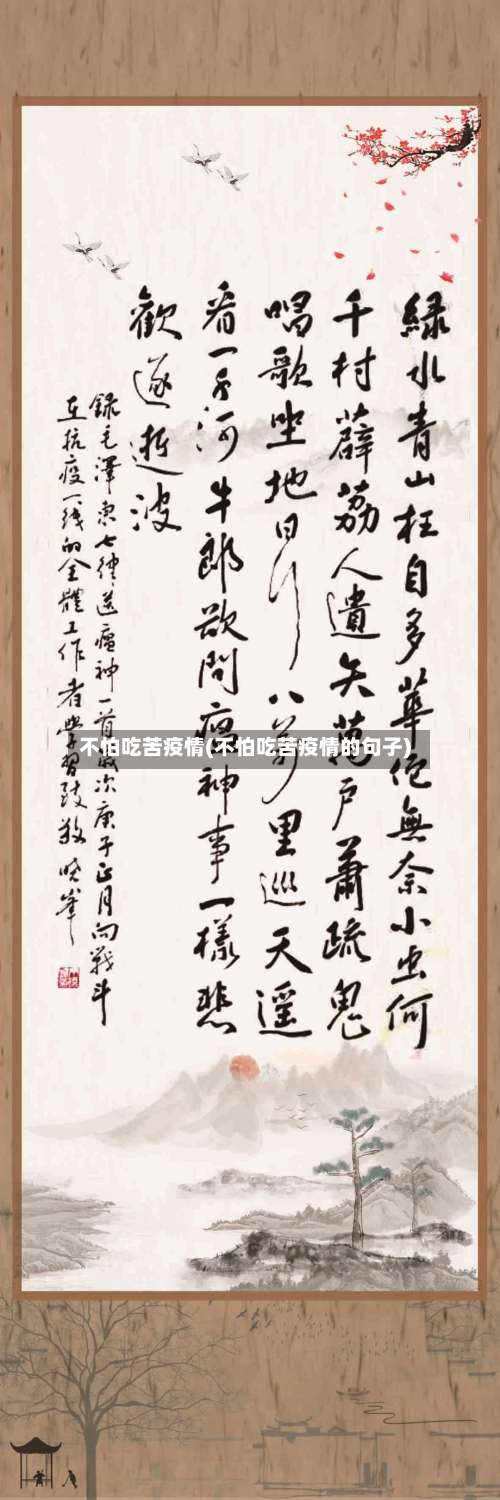 綠水青山枉自多華佗無奈小虫何
千村薜荔人遺矢萬户蕭疏鬼
唱歌坐地日行八萬里巡天遥
看一千河牛郎欲問瘟神事一樣悲
歡逐逝波
錄毛澤東七律送瘟神一首歲次庚子正月向戰斗
在抗疫一线的全體工作者學習致敬晓峯
不怕吃苦疫情(不怕吃苦疫情的句子)